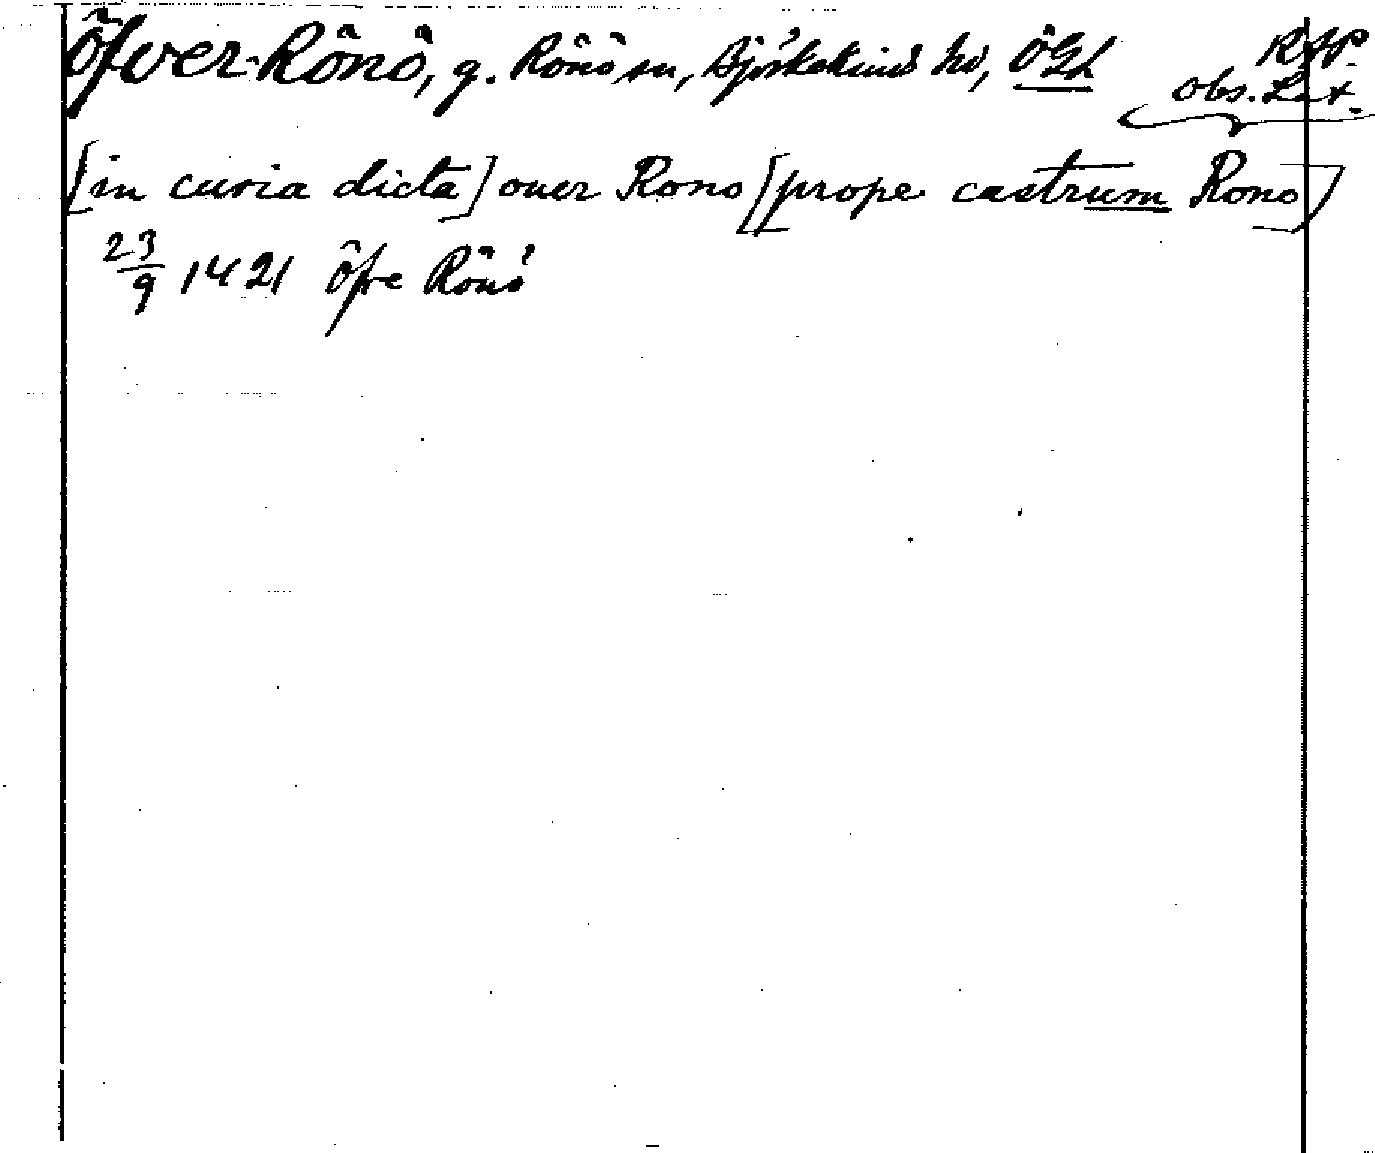 Öfver-Rönö, g. Rönö sn, Björkekinds hd, ÖGL RAP.
Obs. Lat.
[in curia dicta] ouer Rono [prope castrum Rono]
23/9 1421 Öfre Rönö